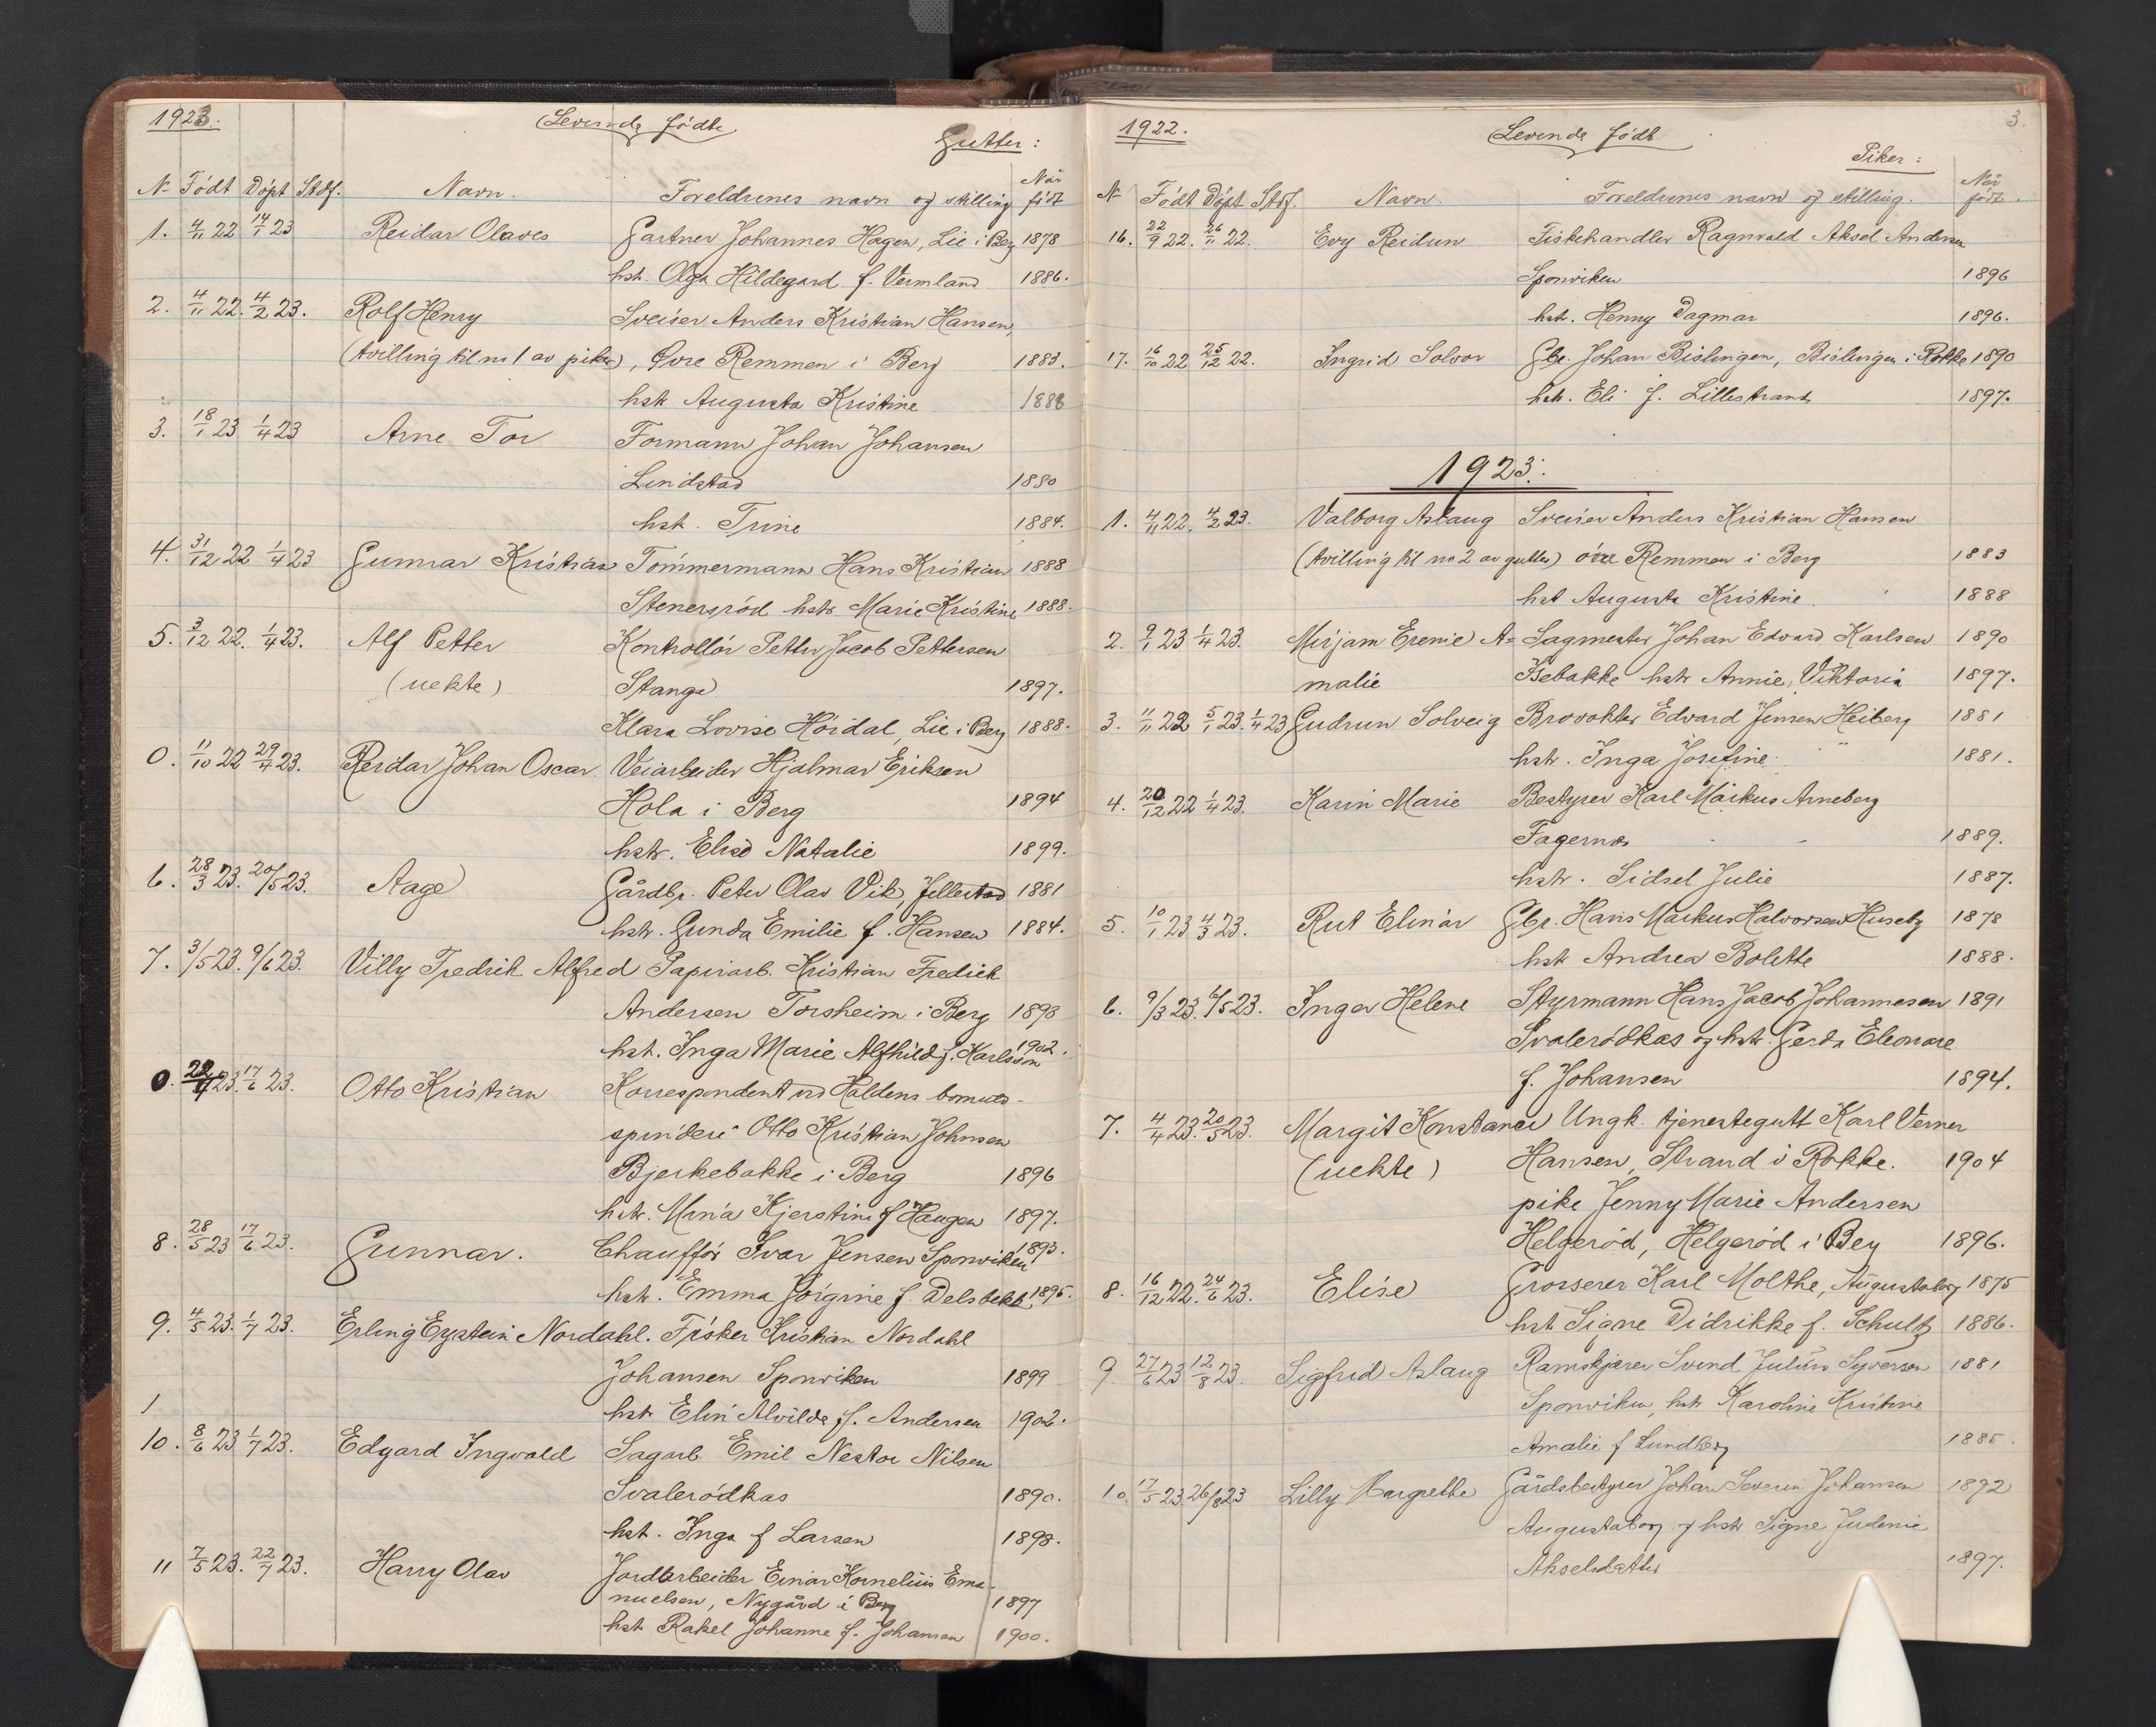 1923.
Levende fødte
Gutter:
Nr Født Døpt Stdf. Navn. Foreldrenes navn og stilling Når født
1. 4/11 22 14/1 23 Reidar Olaves Gartner Johannes Hagen, Lie i Berg 1878
hstr. Olga Hildegard f. Vermland 1886.
2. 4/11 22. 4/2 23. Rolf Henry Sveiser Anders Kristian Hansen,
(tvilling til nr 1 av piker), Øvre Remmen i Berg 1883.
hstr Augusta Kristine 1888
3. 18/1 23 1/4 23 Arne Tor Formann Johan Johansen
Lindstad 1880
hstr. Trine 1884.
4. 31/12 22 1/4 23 Gunnar Kristian Tömmermann Hans Kristian 1888
Stenersröd hstr. Marie Kristine 1888.
5. 3/12 22. 1/4 23. Alf Petter Kontrollör Petter Jacob Pettersen
(uekte) Stange 1897.
Klara Lovise Höidal, Lie i Berg 1888.
0. 11/10 22 29/4 23. Reidar Johan Oscar Veiarbeider Hjalmar Eriksen
Hola i Berg 1894
hstr. Elise Natalie 1899.
6. 28/3 23. 20/5 23. Aage Gårdbr. Peter Olav Vik, Jellestad 1881
hstr. Gunda Emilie f. Hansen 1884.
7. 3/5 23. 9/6 23. Villy Fredrik Alfred Papirarb. Kristian Fredrik
Andersen Torsheim i Berg 1898
hst. Inga Marie Alfhild f. Karlsson 1902.
0. 22/4 23. 17/6 23. Otto Kristian Korrespondent ved Haldens bomuls-
spinderi Otto Kristian Johnsen
Bjerkebakke i Berg 1896
hstr. Mina Kjerstine f Haugen 1897.
8. 28/5 23 17/6 23. Gunnar. Chaufför Ivar Jensen Sponviken 1893.
hstr. Emma Jörgine f. Delsbekk 1895.
9. 4/5 23. 1/7 23. Erling Eystein Nordahl. Fisker Kristian Nordahl
Johansen Sponviken 1899
1 hstr Elin Alvilde f. Andersen 1902.
10. 8/6 23 1/7 23. Edgard Ingvald Sagarb. Emil Nestor Nilsen
Svalerödkas 1890.
hst. Inga f Larsen 1898.
11 7/5 23. 22/7 23. Harry Olav Jordarbeider Einar Kornelius Ema-
nuelsen, Nygård i Berg 1897
hst Rakel Johanne f. Johansen 1900.
3.
1922.
Levende födt
Piker:
Nr Födt Döpt Stdf. Navn. Foreldrenes navn og stilling. Når födt.
16. 22/9 22. 26/11 22. Evy Reidun Fiskehandler Ragnvald Aksel Andersen
Sponviken 1896
hst. Henny Dagmar 1896.
17. 16/10 22 25/12 22. Ingrid Solvor Gbr. Johan Bislingen, Bislingen i Rokke 1890
hst. Eli f. Lillestrand 1897.
1923.
1. 4/11 22. 4/2 23. Valborg Aslaug Sveiser Anders Kristian Hansen
(tvilling til nr 2 av gutter) övre Remmen i Berg 1883
hst Augusta Kristine 1888
2. 9/1 23 1/4 23. Mirjam Erenie A= Sagmester Johan Edvard Karlsen 1890
malie Isebakke hstr Annie, Viktoria 1897.
3. 11/11 22 5/1 23. 1/4 23 Gudrun Solveig Brovokter Edvard Jensen Heiberg 1881
hstr. Inga Josefine 1881.
4. 20/12 22 1/4 23. Karin Marie Bestyrer Karl Markus Arneberg
Fagernes 1889.
hstr. Sidsel Julie 1887.
5. 10/1 23 4/3 23. Rut Elinár Gbr. Hans Markus Halvorsen Huseby 1878
hst Andrea Bolette 1888.
6. 9/3 23. 6/5 23. Inger Helene Styrmann Hans Jacob Johannesen 1891
Svalerödkas og hstr. Gerda Eleonore
f. Johansen 1894.
7. 4/4 23. 20/5 23. Margit Konstance Ungk. tjenestegutt Karl Verner
(uekte) Hansen, Strand i Rokke. 1904
pike Jenny Marie Andersen
Helgeröd, Helgeröd i Berg 1896.
8. 16/12 22. 24/6 23. Elise Grosserer Karl Molthe, Augustaborg 1875
hst Signe Didrikke f. Schultz 1886.
9 27/6 23 12/8 23. Sigfrid Aslaug Ramskjærer Svend Julius Syversen 1881
Sponviken, hstr Karoline Kristine
Amalie f Lundberg 1885.
10. 17/5 23. 26/8 23 Lilly Margrethe Gårdsbestyrer Johan Severin Johansen 1892
Augustaborg og hstr Signe Judinie
Akselsdatter 1897.